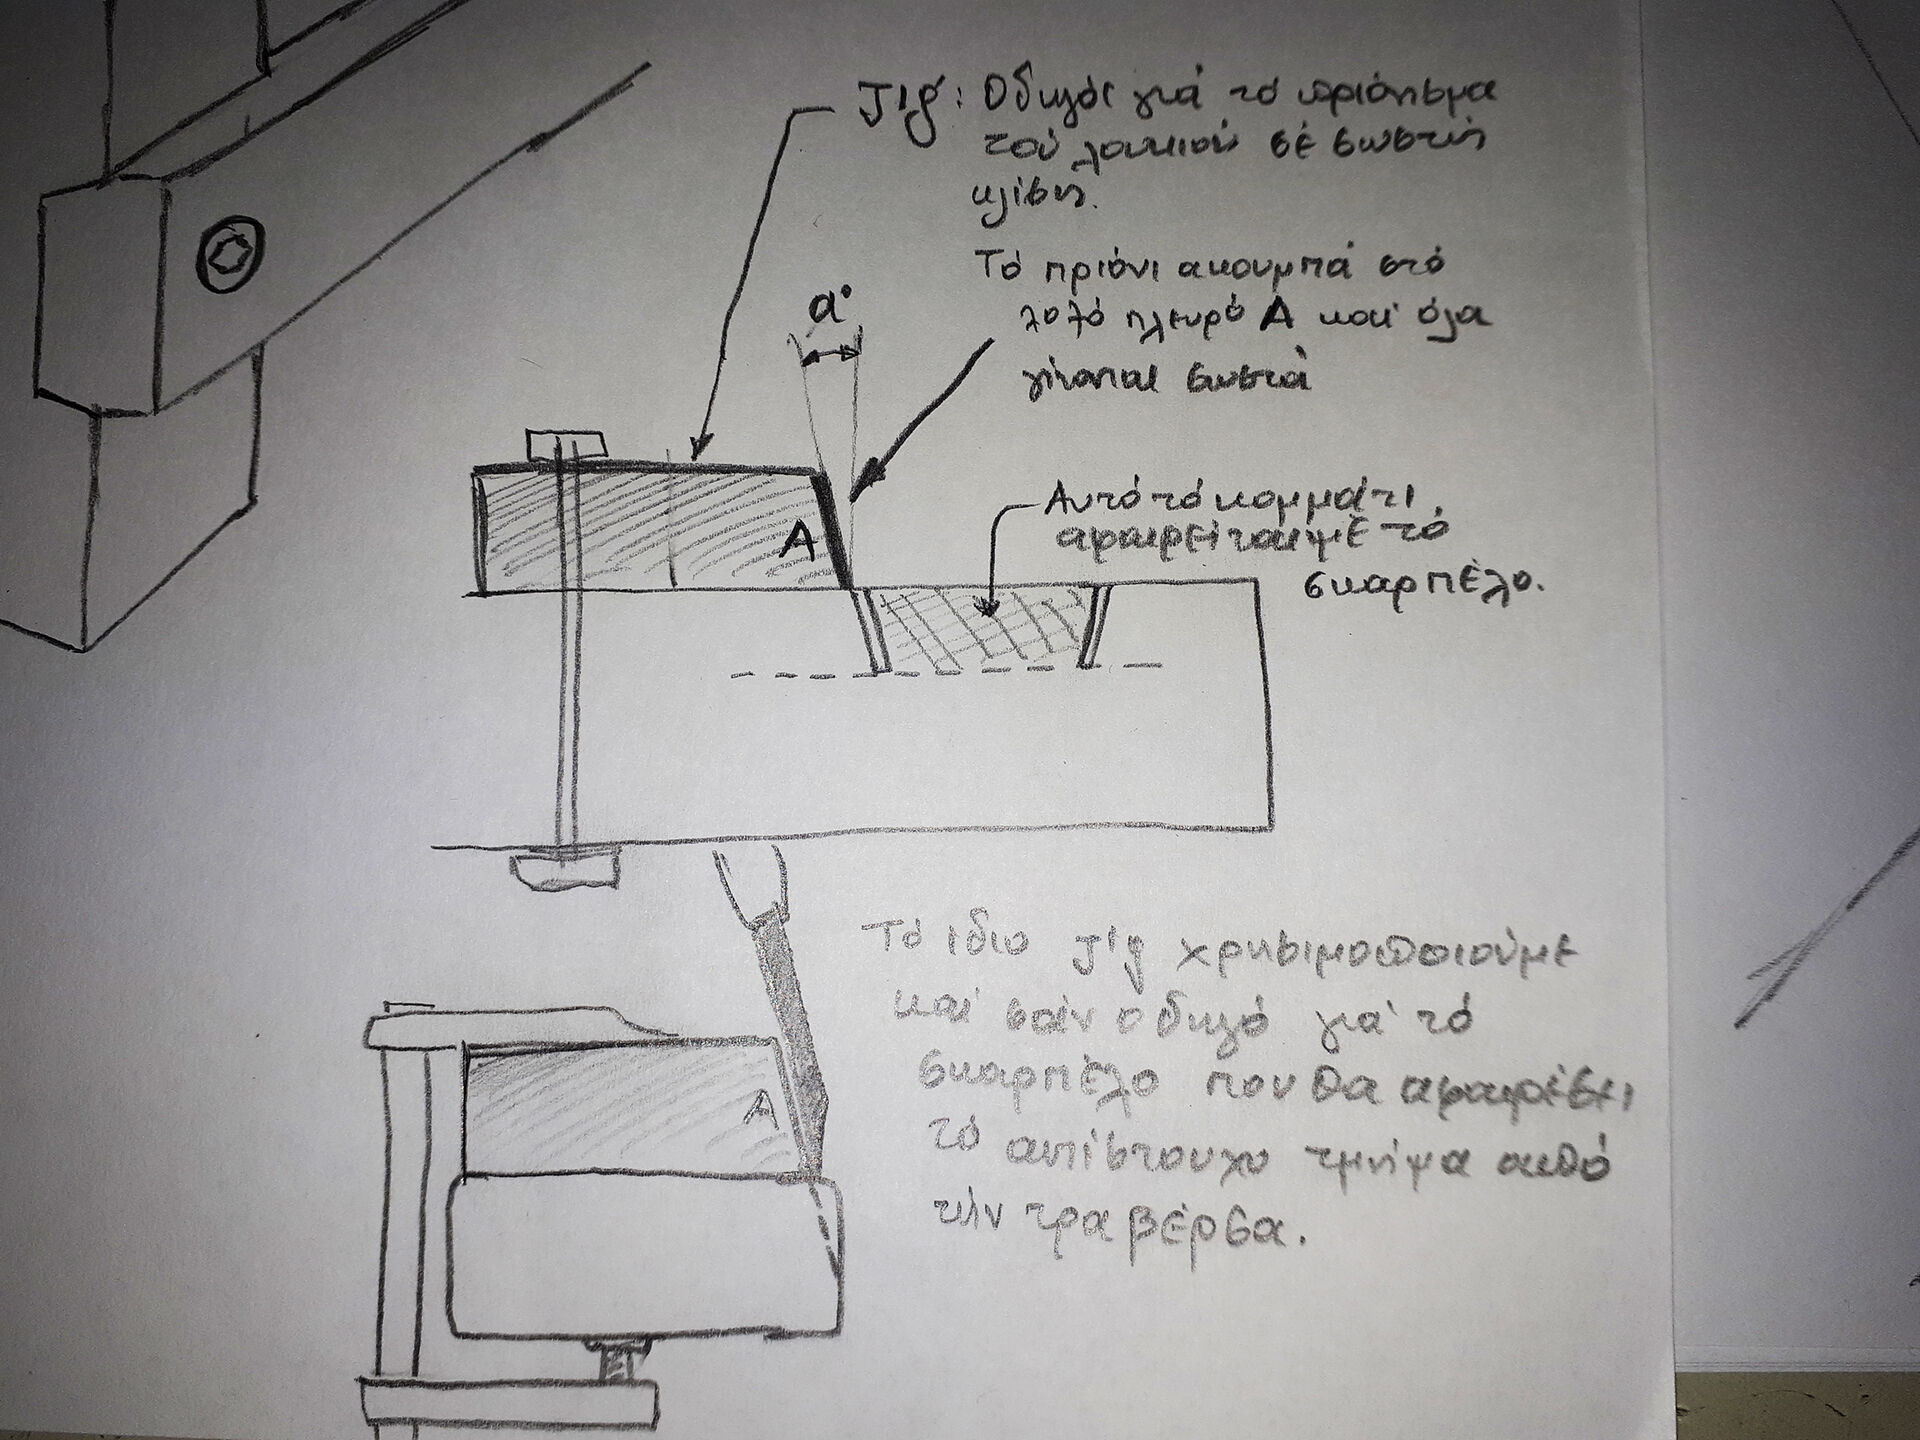 Jig: Οδηγός γιά τό πριόνισμα
τού λουκιού σέ σωστή
κλίση.
α°
Τό πριόνι ακουμπά στό
λοξό πλευρό Α καί όλα
γίνονται σωστά
Α
Αυτό τό κομμάτι
αφαιρείται μέ τό
σκαρπέλο.
Τό ίδιο jig χρησιμοποιούμε
καί σάν οδηγό γιά τό
σκαρπέλο που θα αφαιρέσει
τό αντίστοιχο τμήμα από
τήν τραβέρσα.
Α